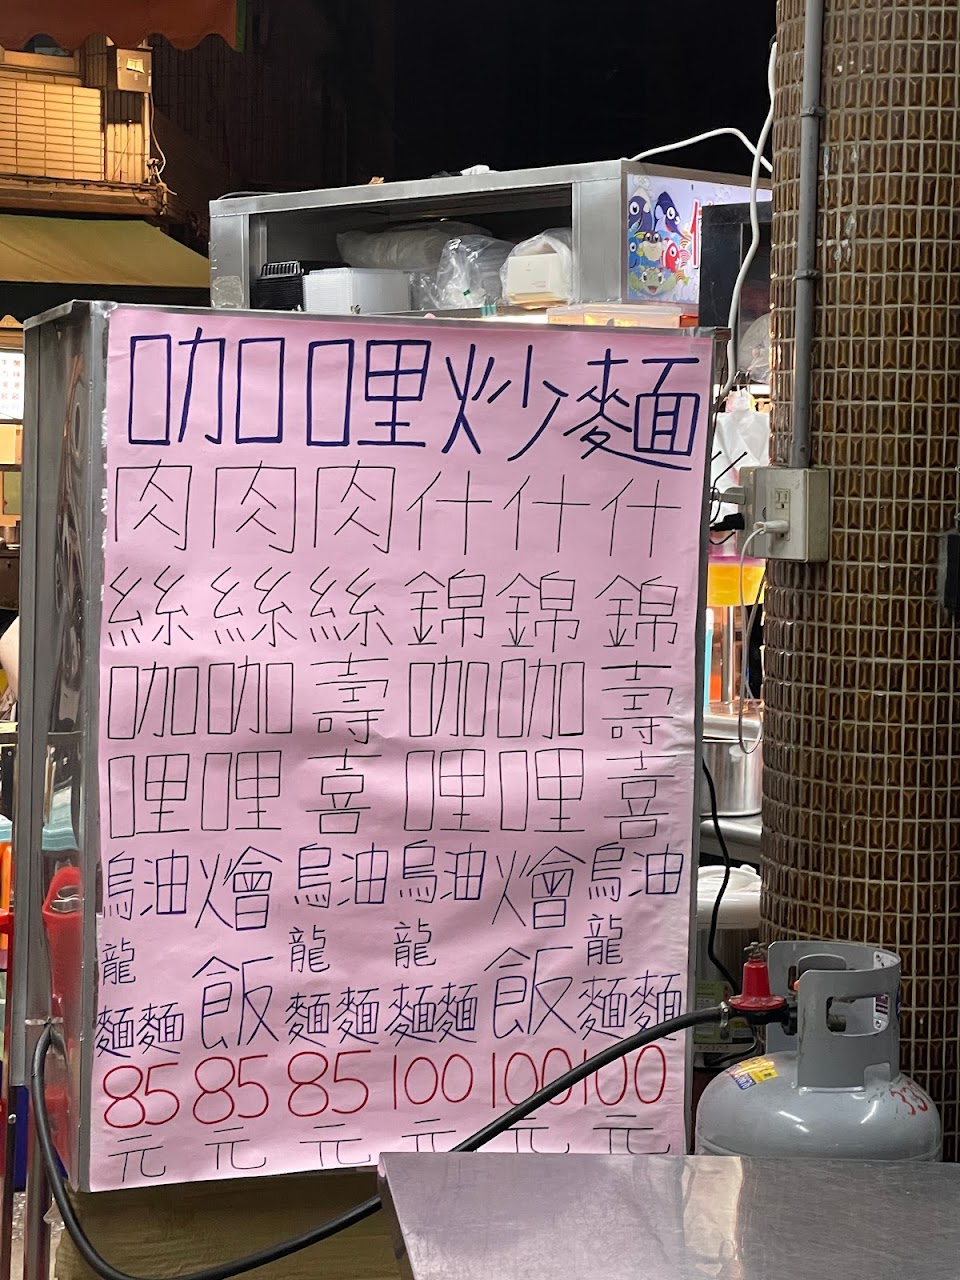 咖哩炒麵
肉絲咖哩烏龍麵油麵85元
肉絲咖哩燴飯85元
肉絲壽喜烏龍麵油麵85元
什錦咖哩烏龍麵油麵100元
什錦咖哩燴飯100元
什錦壽喜烏龍麵油麵100元